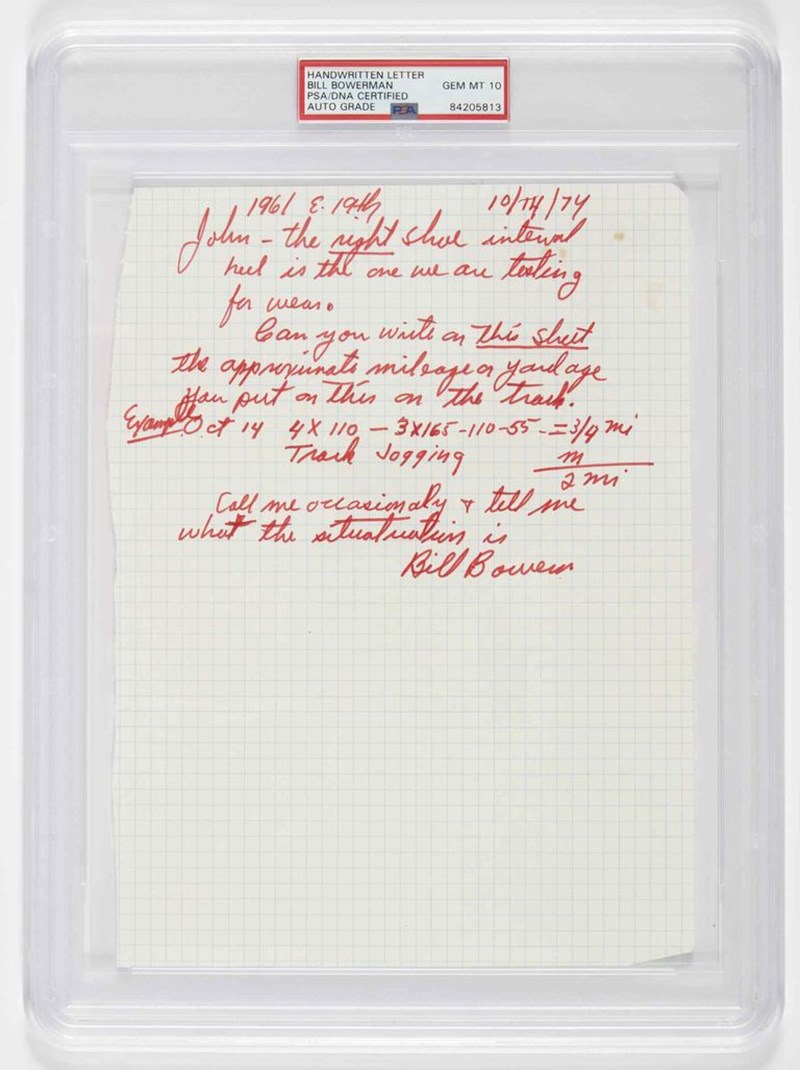 HANDWRITTEN LETTER
BILL BOWERMAN GEM MT 10
PSA/DNA CERTIFIED
AUTO GRADE PSA 84205813
1961 E. 19th 10/14/74
John - the right shoe
heel is the one we are testing
for wear.
Can you write on this sheet
the approximate mileage or yardage
you put on this on the track.
Example Oct 14 4X 110 - 3X165-110-55-=3/4 mi
Track Jogging m
2 mi
Call me occasionaly + tell me
what the is
Bill Bowerm